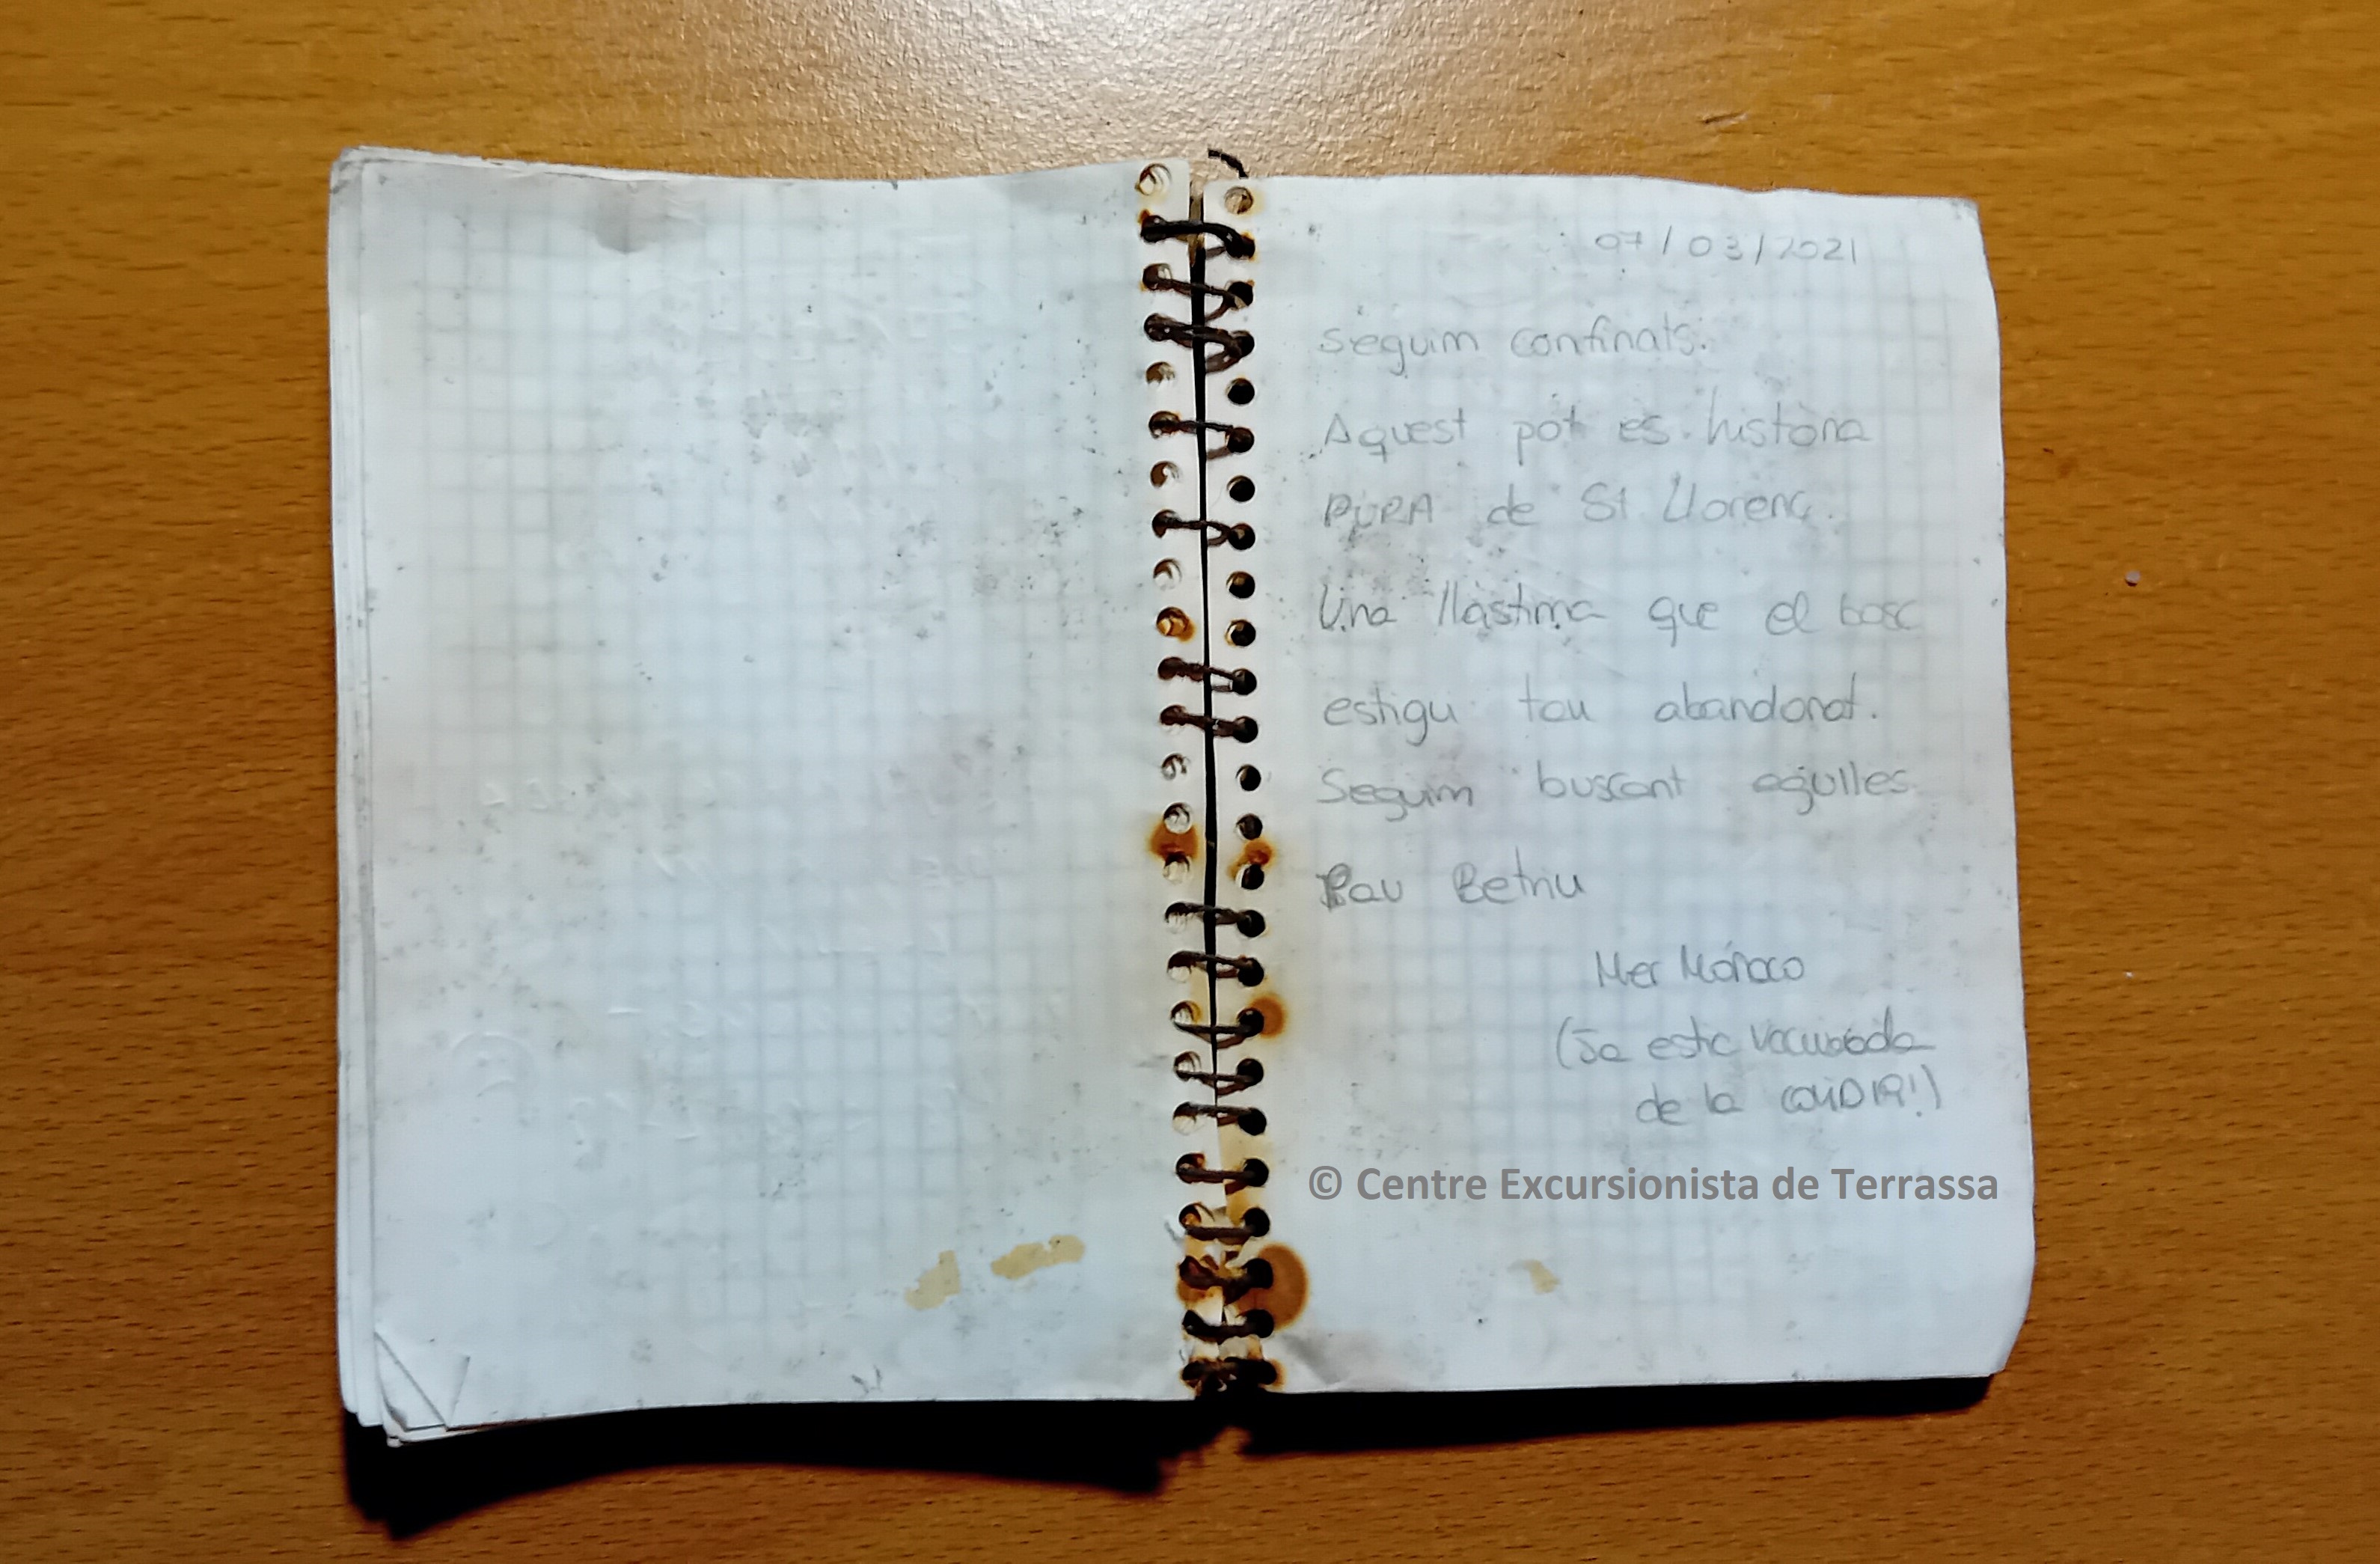 07/03/2021
Seguim confinats.
Aquest pot es història
PURA de St. Llorenç.
Una llàstima que el bosc
estigui tan abandonat.
Seguim buscant agulles.
Pau Betriu
Mer Mónaco
(Ja estic vacunada
de la COVID19!)
© Centre Excursionista de Terrassa